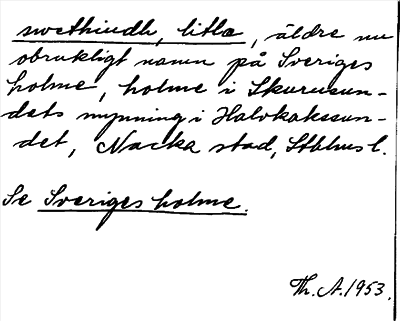 swethiudh, litla, äldre nu
obrukligt namn på Sveriges
holme, holme i Skurusun-
dets mynning i Halvkakssun-
det, Nacka stad, Sthlms l.
Se Sveriges holme.
Th. A. 1953.